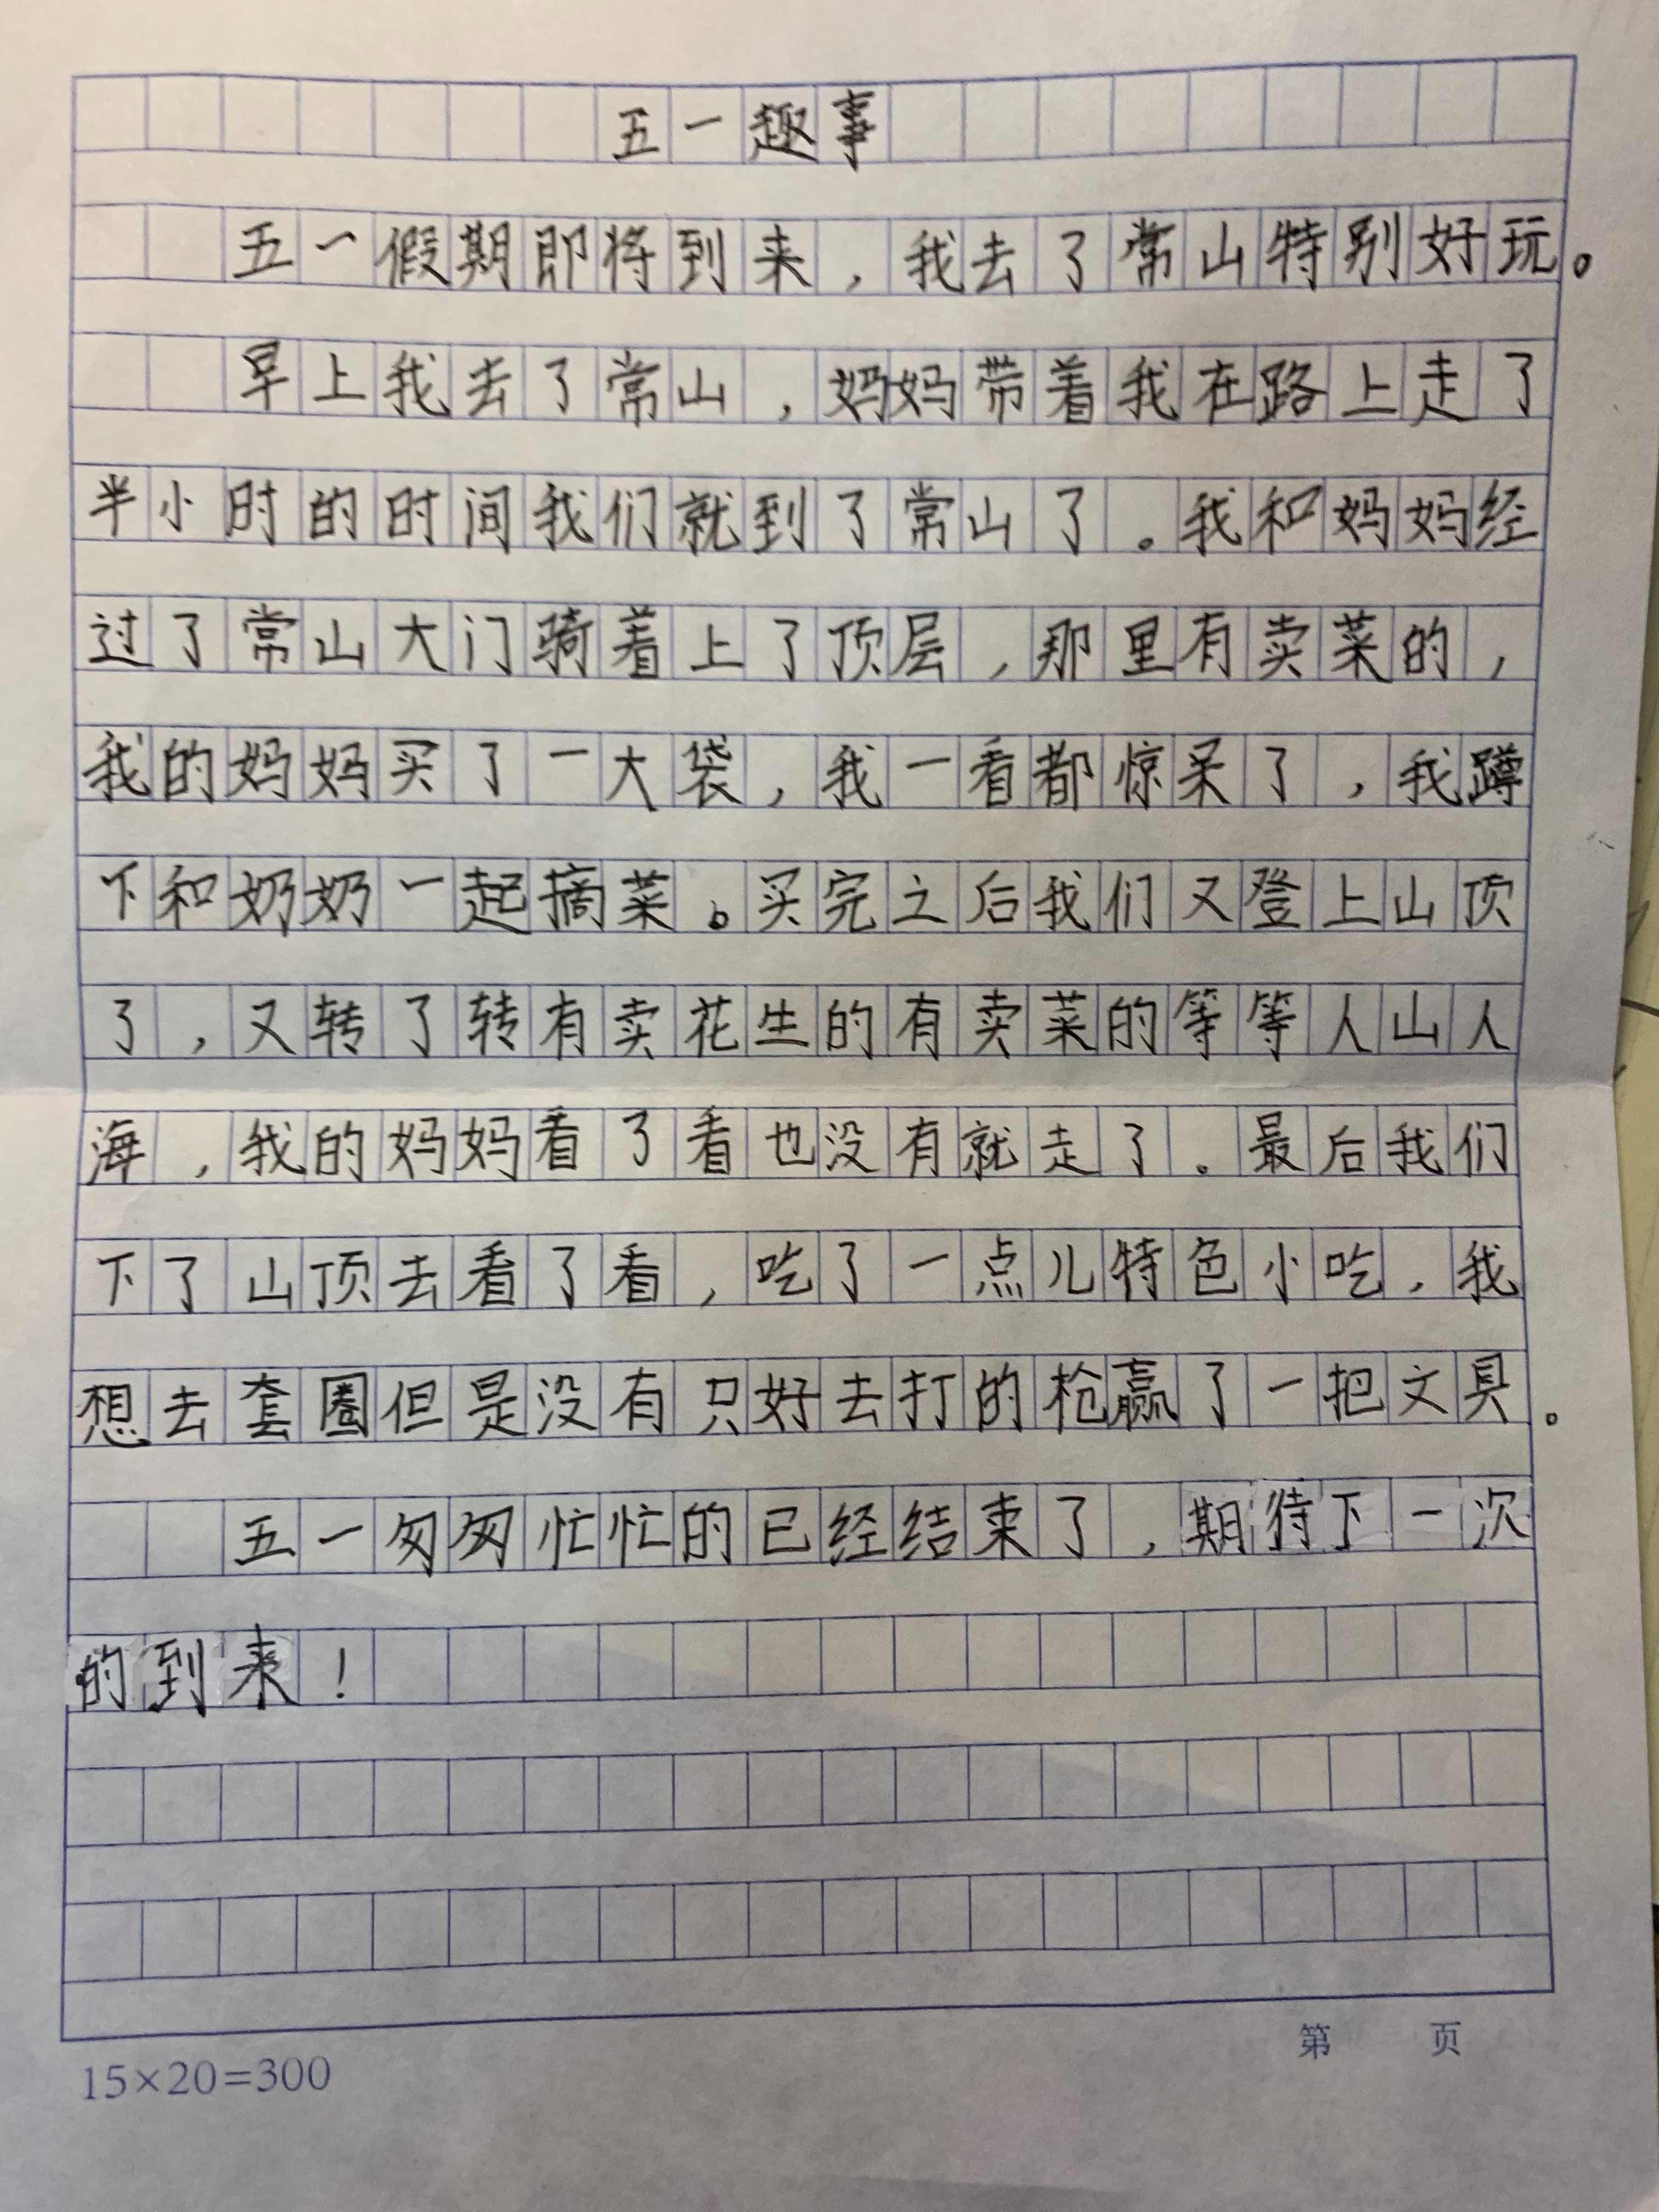 五一趣事
五一假期即将到来，我去了常山特别好玩。
早上我去了常山，妈妈带着我在路上走了
半小时的时间我们就到了常山了。我和妈妈经
过了常山大门骑着上了顶层，那里有卖菜的，
我的妈妈买了一大袋，我一看都惊呆了，我蹲
下和奶奶一起摘菜。买完之后我们又登上山顶
了，又转了转有卖花生的有卖菜的等等人山人
海，我的妈妈看了看也没有就走了。最后我们
下了山顶去看了看，吃了一点儿特色小吃，我
想去套圈但是没有只好去打的枪赢了一把文具。
五一匆匆忙忙的已经结束了，期待下一次
的到来！
第 页
15×20=300